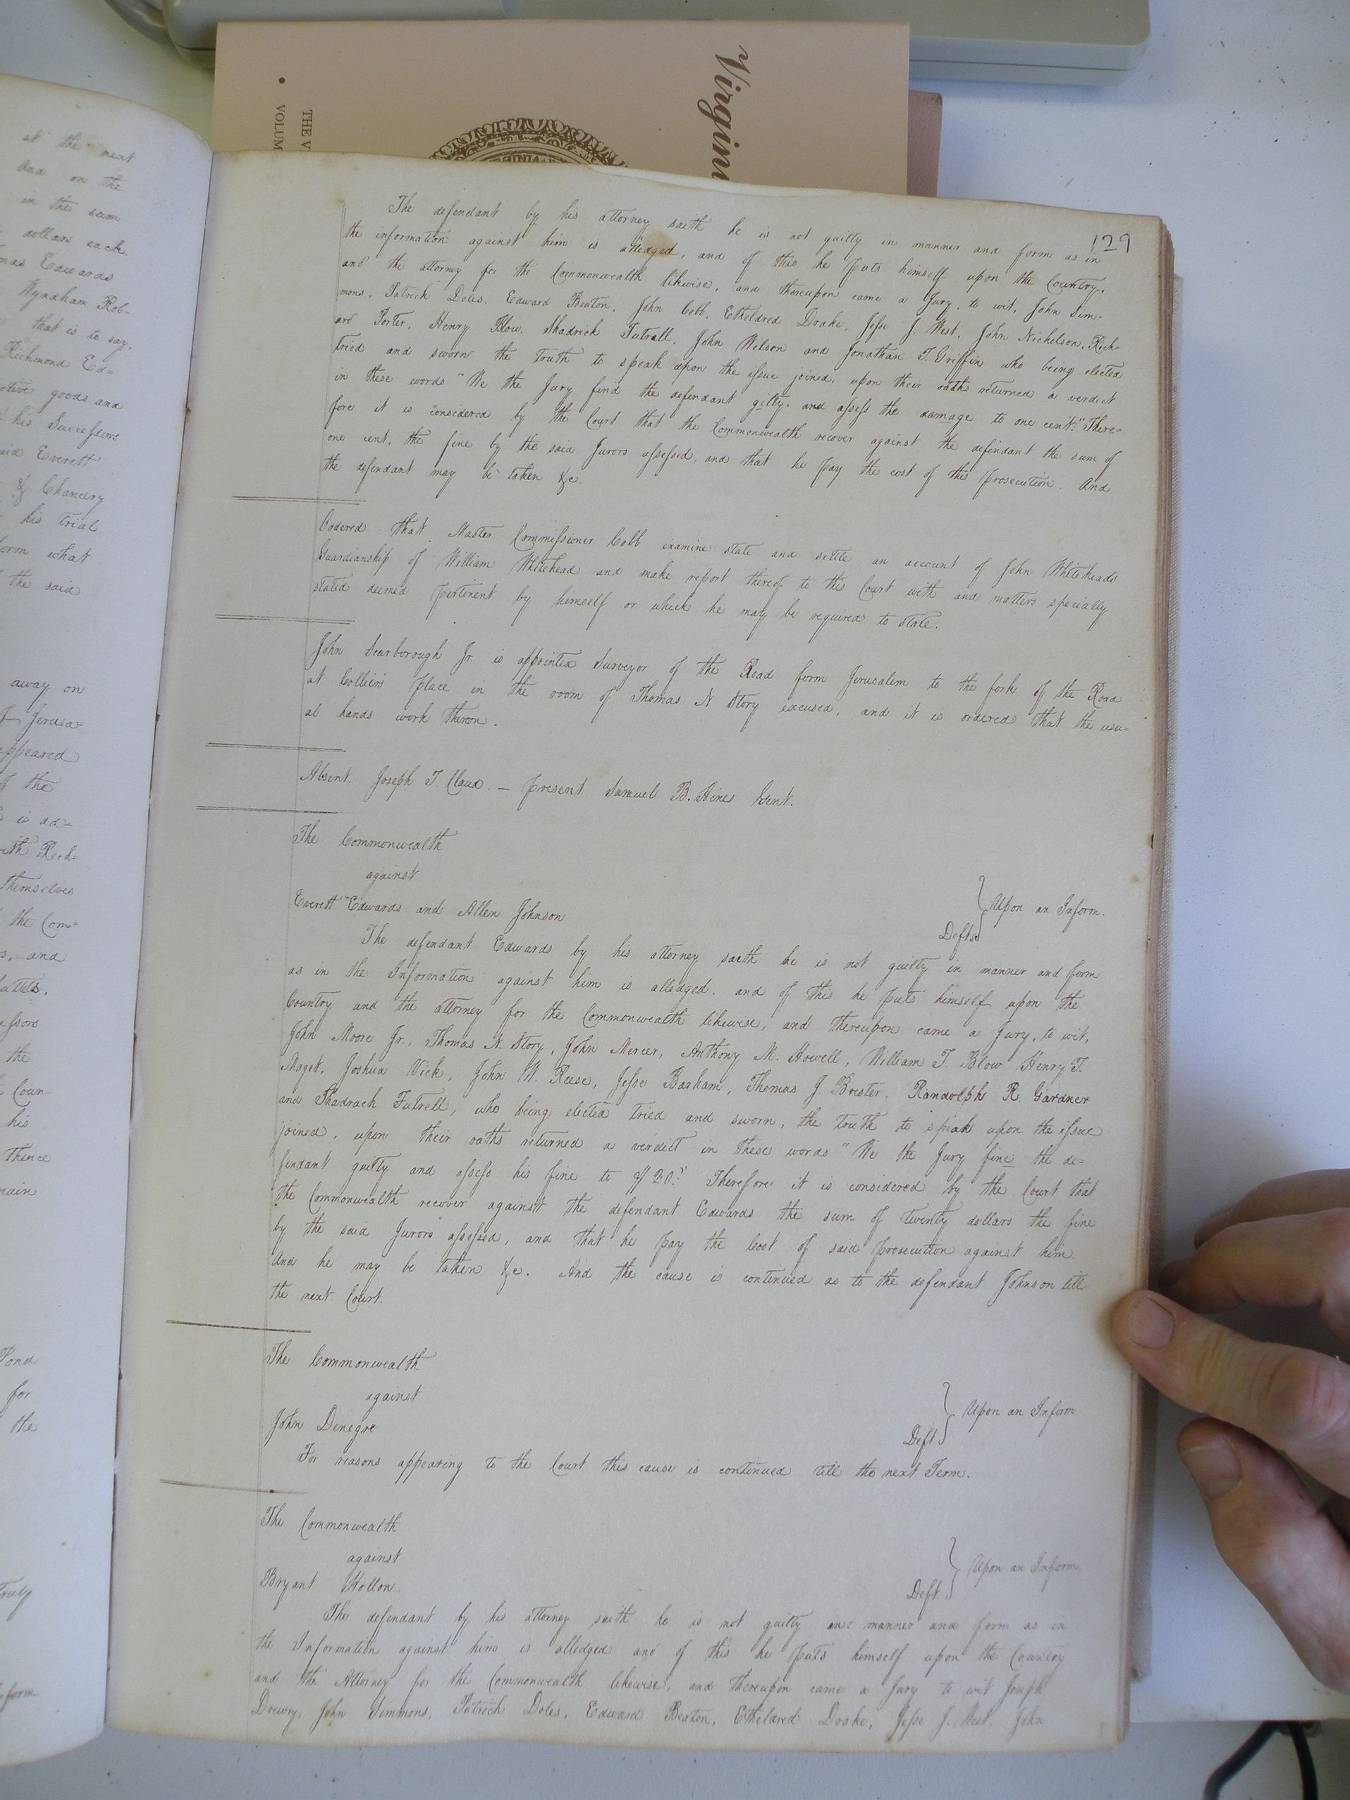 Virginia
THE V
VOLUM
at the next
and on the
in the sum
dollars each.
mas Edwards
Wyndham Rob-
that is to say,
Richmond Ed-
goods and
his Successors
said Everett
& Chancery
his trial
form what
the said
away on
of Jerusa-
appeared
of the
is ad-
with Rich-
themselves
the Com-
s, and
the
Coun-
his
Thence
main
Pond
for
the
Truly
Inform
129
The defendant by his attorney saith he is not guilty in manner and form as in
the information against him is alledged, and of this he puts himself upon the Country,
and the attorney for the Commonwealth likewise, and thereupon came a Jury, to wit, John Sim-
mons, Patrick Doles, Edward Beaton, John Cobb, Etheldred Drake, Jesse J West, John Nicholson, Rich-
ard Porter, Henry Blow, Shadrack Futrell, John Nelson and Jonathan T. Griffin who being elected
tried and sworn the truth to speak upon the issue joined, upon their oaths returned a verdict
in these words "We the Jury find the defendant gilty. and assess the damage to one cent." There-
fore it is considered by the Court that the Commonwealth recover against the defendant the sum of
one cent, the fine by the said Jurors assessed, and that he pay the cost of this prosecution. And
the defendant may be taken &c.
Ordered that Master Commissioner Cobb examine state and settle an account of John Whiteheads
Guardianship of William Whitehead and make report thereof to the Court with and matters specially
stated deemed pertinent by himself or which he may be required to state.
John Scarborough Jr. is appointed Surveyor of the Road form Jerusalem to the fork of the Road
at Colliers place in the room of Thomas N Story excused, and it is ordered that the usu-
al hands work theron.
Absent. Joseph T. Claud. — Present Samuel B. Hines Gent.
The Commonwealth
against
Everett Edwards and Allen Johnson Defts } Upon an Inform.
The defendant Edwards by his attorney saith he is not guilty in manner and form
as in the Information against him is alledged. and of this he puts himself upon the
Country and the attorney for the Commonwealth likewise, and thereupon came a Jury, to wit,
John Moore Jr. Thomas N. Story, John Mercer, Anthony M. Howell, William T. Blow Henry T.
Maget, Joshua Vick, John W. Reese, Jesse Barham, Thomas J. Brister, Randolph R. Gardner
and Shadrach Futrell, who being elected tried and sworn, the truth to speak upon the issue
joined, upon their oaths returned a verdict in these words "We the Jury fine the de-
fendant guilty and assess his fine to $20." Therefore it is considered by the Court that
the Commonwealth recover against the defendant Edwards the sum of twenty dollars the fine
by the said Jurors assessed, and that he pay the Cost of said prosecution against him
And he may be taken &c. And the cause is continued as to the defendant Johnson till
the next Court.
The Commonwealth
against
John Denegre Deft } Upon an Inform
For reasons appearing to the Court this cause is continued till the next Term.
The Commonwealth
against
Bryant Hollon. Deft. } Upon an Inform.
The defendant by his attorney saith he is not guilty in manner and form as in
the Information against him is alledged and of this he puts himself upon the Country
and the Attorney for the Commonwealth likewise, and thereupon came a Jury to wit Joseph
Drewry, John Simmons, Patrick Doles, Edward Beaton, Etheldred Drake, Jesse J. West, John